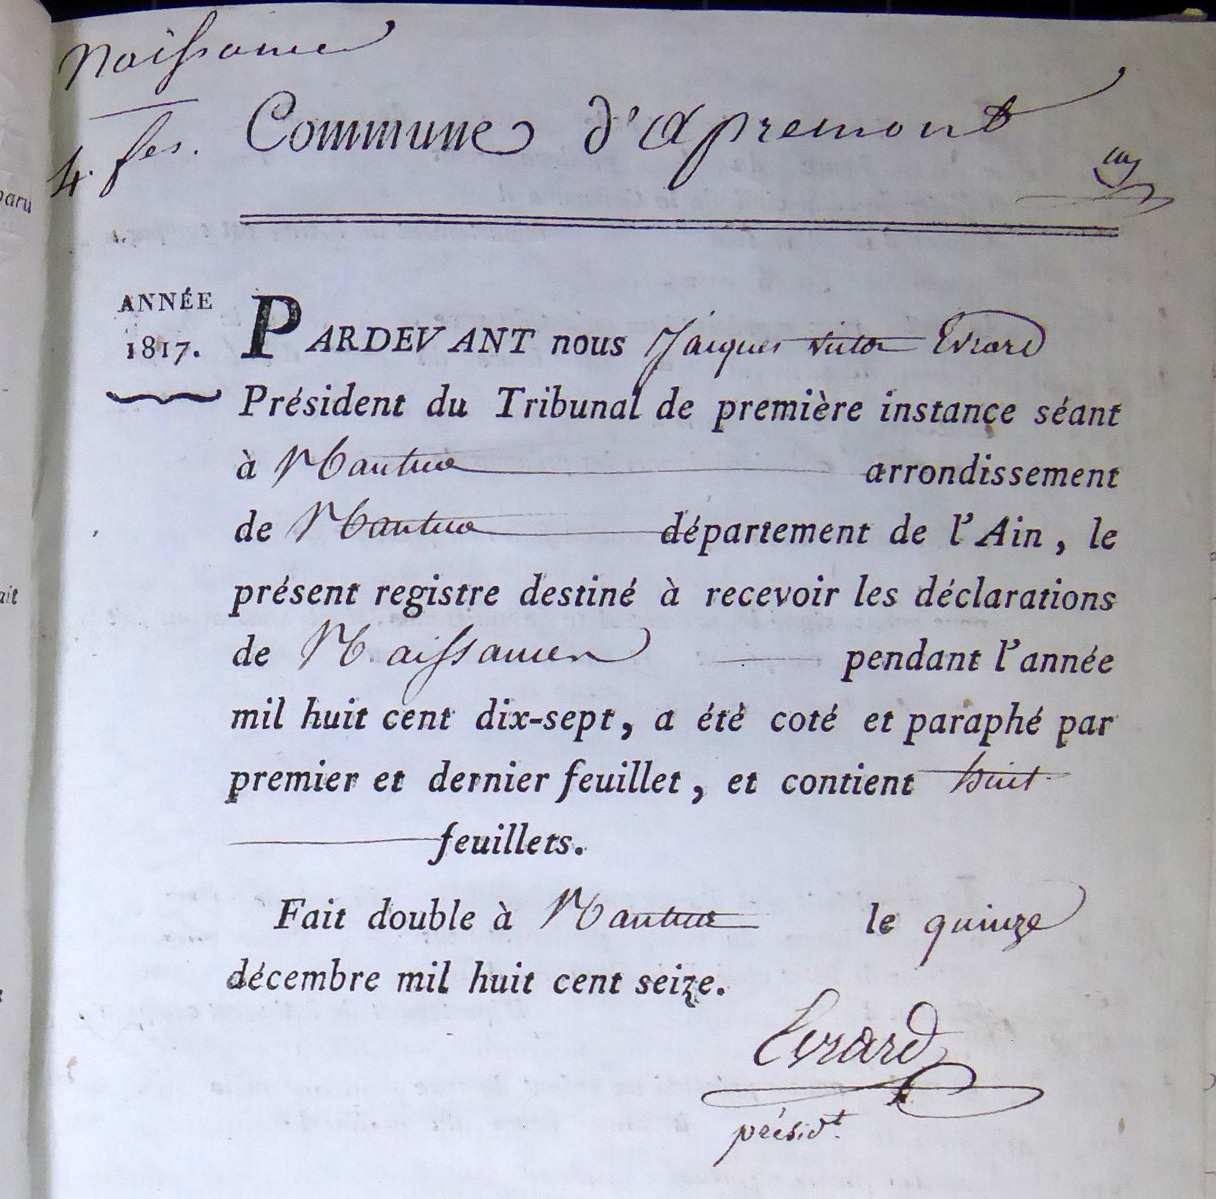 Naissance
4. fes.
Commune d'apremont
ANNÉE
1817.
PARDEVANT nous Jacques victor Evrard
Président du Tribunal de première instance séant
à Nantua arrondissement
de Nantua département de l'Ain, le
présent registre destiné à recevoir les déclarations
de Naissances pendant l'année
mil huit cent dix-sept, a été coté et paraphé par
premier et dernier feuillet, et contient huit
feuillets.
Fait double à Nantua le quinze
décembre mil huit cent seize.
Evrard
présidt.